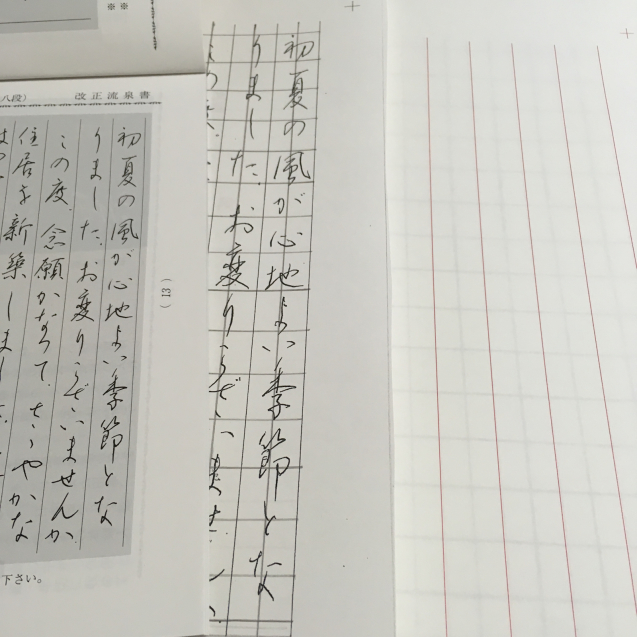 ※※
八段)
改正流泉書
初夏の風が心地よい季節とな
りました。お変りございませんか
この度、念願かなって、ささやかな
住居を新築しました
下さい。
(13)
初夏の風が心地よい季節とな
りました。お変りございません